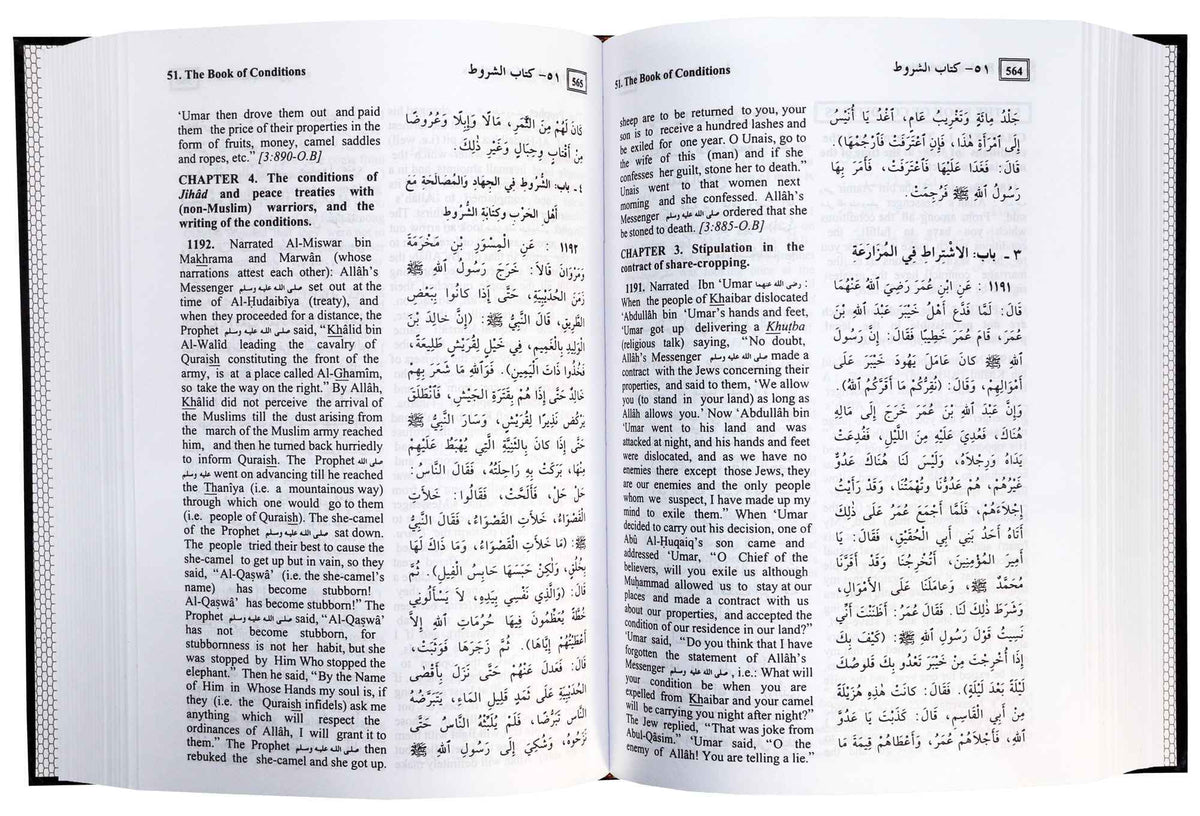 51. The Book of Conditions
٥١- كتاب الشروط
564
sheep are to be returned to you, your
son is to receive a hundred lashes and
be exiled for one year. O Unais, go to
the wife of this (man) and if she
confesses her guilt, stone her to death.”
Unais went to that women next
morning and she confessed. Allâh’s
Messenger صلى الله عليه وسلم ordered that she
be stoned to death. [3:885-O.B]
CHAPTER 3. Stipulation in the
contract of share-cropping.
1191. Narrated Ibn ‘Umar رضي الله عنهما :
When the people of Khaibar dislocated
‘Abdullâh bin ‘Umar’s hands and feet,
‘Umar got up delivering a Khutba
(religious talk) saying, “No doubt,
Allâh’s Messenger صلى الله عليه وسلم made a
contract with the Jews concerning their
properties, and said to them, ‘We allow
you (to stand in your land) as long as
Allâh allows you.’ Now ‘Abdullâh bin
‘Umar went to his land and was
attacked at night, and his hands and feet
were dislocated, and as we have no
enemies there except those Jews, they
are our enemies and the only people
whom we suspect, I have made up my
mind to exile them.” When ‘Umar
decided to carry out his decision, one of
Abû Al-Ḥuqaiq’s son came and
addressed ‘Umar, “O Chief of the
believers, will you exile us although
Muḥammad allowed us to stay at our
places and made a contract with us
about our properties, and accepted the
condition of our residence in our land?”
‘Umar said, “Do you think that I have
forgotten the statement of Allâh’s
Messenger صلى الله عليه وسلم , i.e.: What will
your condition be when you are
expelled from Khaibar and your camel
will be carrying you night after night?”
The Jew replied, “That was joke from
Abul-Qâsim.” ‘Umar said, “O the
enemy of Allâh! You are telling a lie.”
جَلْدُ مِائَةٍ وَتَغْرِيبُ عَامٍ، اغْدُ يَا أُنَيْسُ
إِلَى امْرَأَةِ هٰذَا، فَإِنِ اعْتَرَفَتْ فَارْجُمْهَا).
قَالَ: فَغَدَا عَلَيْهَا فَاعْتَرَفَتْ، فَأَمَرَ بِهَا
رَسُولُ اللهِ ﷺ فَرُجِمَتْ
٣ ـ باب: الاشْتراط في المُزَارَعَة
١١٩١ : عَنِ ابْنِ عُمَرَ رَضِيَ اللهُ عَنْهُمَا
قَالَ: لَمَّا فَدَعَ أَهْلُ خَيْبَرَ عَبْدَ اللهِ بْنَ
عُمَرَ، قَامَ عُمَرُ خَطِيبًا فَقَالَ: إِنَّ رَسُولَ
اللهِ ﷺ كانَ عَامَلَ يَهُودَ خَيْبَرَ عَلَى
أَمْوَالِهِمْ، وَقَالَ: (نُقِرُّكُمْ مَا أَقَرَّكُمُ اللهُ).
وَإِنَّ عَبْدَ اللهِ بْنَ عُمَرَ خَرَجَ إِلَى مَالِهِ
هُنَاكَ، فَعُدِيَ عَلَيْهِ مِنَ اللَّيْلِ، فَفُدِعَتْ
يَدَاهُ وَرِجْلَاهُ، وَلَيْسَ لَنَا هُنَاكَ عَدُوٌّ
غَيْرُهُمْ، هُمْ عَدُوُّنَا وَتُهْمَتُنَا، وَقَدْ رَأَيْتُ
إِجْلَاءَهُمْ، فَلَمَّا أَجْمَعَ عُمَرُ عَلَى ذٰلِكَ
أَتَاهُ أَحَدُ بَنِي أَبِي الْحُقَيْقِ، فَقَالَ: يَا
أَمِيرَ الْمُؤْمِنِينَ، أَتُخْرِجُنَا وَقَدْ أَقَرَّنَا
مُحَمَّدٌ ﷺ، وَعَامَلَنَا عَلَى الْأَمْوَالِ،
وَشَرَطَ ذٰلِكَ لَنَا. فَقَالَ عُمَرُ: أَظَنَنْتَ أَنِّي
نَسِيتُ قَوْلَ رَسُولِ اللهِ ﷺ: (كَيْفَ بِكَ
إِذَا أُخْرِجْتَ مِنْ خَيْبَرَ تَعْدُو بِكَ قَلُوصُكَ
لَيْلَةً بَعْدَ لَيْلَةٍ). فَقَالَ: كانَتْ هٰذِهِ هُزَيْلَةً
مِنْ أَبِي الْقَاسِمِ، قَالَ: كَذَبْتَ يَا عَدُوَّ
اللهِ، فَأَجْلَاهُمْ عُمَرُ، وَأَعْطَاهُمْ قِيمَةَ مَا
51. The Book of Conditions
٥١- كتاب الشروط
565
‘Umar then drove them out and paid
them the price of their properties in the
form of fruits, money, camel saddles
and ropes, etc.” [3:890-O.B]
CHAPTER 4. The conditions of
Jihâd and peace treaties with
(non-Muslim) warriors, and the
writing of the conditions.
1192. Narrated Al-Miswar bin
Makhrama and Marwân (whose
narrations attest each other): Allâh’s
Messenger صلى الله عليه وسلم set out at the
time of Al-Ḥudaibîya (treaty), and
when they proceeded for a distance, the
Prophet صلى الله عليه وسلم said, “Khâlid bin
Al-Walîd leading the cavalry of
Quraish constituting the front of the
army, is at a place called Al-Ghamîm,
so take the way on the right.” By Allâh,
Khâlid did not perceive the arrival of
the Muslims till the dust arising from
the march of the Muslim army reached
him, and then he turned back hurriedly
to inform Quraish. The Prophet صلى الله
عليه وسلم went on advancing till he reached
the Thanîya (i.e. a mountainous way)
through which one would go to them
(i.e. people of Quraish). The she-camel
of the Prophet صلى الله عليه وسلم sat down.
The people tried their best to cause the
she-camel to get up but in vain, so they
said, “Al-Qaṣwâ’ (i.e. the she-camel’s
name) has become stubborn!
Al-Qaṣwâ’ has become stubborn!” The
Prophet صلى الله عليه وسلم said, “Al-Qaṣwâ’
has not become stubborn, for
stubbornness is not her habit, but she
was stopped by Him Who stopped the
elephant.” Then he said, “By the Name
of Him in Whose Hands my soul is, if
they (i.e. the Quraish infidels) ask me
anything which will respect the
ordinances of Allâh, I will grant it to
them.” The Prophet صلى الله عليه وسلم then
rebuked the she-camel and she got up.
كانَ لَهُمْ مِنَ الثَّمَرِ، مَالًا وَإِبِلًا وَعُرُوضًا
مِنْ أَقْتَابٍ وَحِبَالٍ وَغَيْرِ ذٰلِكَ.
٤ـ باب: الشُّرُوط في الجِهاد وَالمُصَالَحَة مَعَ
أَهْلِ الحَرْب وَكتَابَة الشُّرُوط
١١٩٢ : عَنِ الْمِسْوَرِ بْنِ مَخْرَمَةَ
وَمَرْوَانَ قَالَا: خَرَجَ رَسُولُ اللهِ ﷺ
زَمَنَ الْحُدَيْبِيَةِ، حَتَّى إِذَا كانُوا بِبَعْضِ
الطَّرِيقِ، قَالَ النَّبِيُّ ﷺ: (إِنَّ خالِدَ بْنَ
الْوَلِيدِ بِالْغَمِيمِ، فِي خَيْلٍ لِقُرَيْشٍ طَلِيعَةً،
فَخُذُوا ذَاتَ الْيَمِينِ). فَوَاللهِ مَا شَعَرَ بِهِمْ
خالِدٌ حَتَّى إِذَا هُمْ بِقَتَرَةِ الْجَيْشِ، فَانْطَلَقَ
يَرْكُضُ نَذِيرًا لِقُرَيْشٍ، وَسَارَ النَّبِيُّ ﷺ
حَتَّى إِذَا كانَ بِالثَّنِيَّةِ الَّتِي يُهْبَطُ عَلَيْهِمْ
مِنْهَا، بَرَكَتْ بِهِ رَاحِلَتُهُ، فَقَالَ النَّاسُ:
حَلْ حَلْ، فَأَلَحَّتْ، فَقَالُوا: خَلأَتِ
الْقَصْوَاءُ، خَلأَتِ الْقَصْوَاءُ، فَقَالَ النَّبِيُّ
ﷺ: (مَا خَلأَتِ الْقَصْوَاءُ، وَمَا ذَاكَ لَهَا
بِخُلُقٍ، وَلٰكِنْ حَبَسَهَا حابِسُ الْفِيلِ). ثُمَّ
قَالَ: (وَالَّذِي نَفْسِي بِيَدِهِ، لَا يَسْأَلُونِي
خُطَّةً يُعَظِّمُونَ فِيهَا حُرُمَاتِ اللهِ إِلَّا
أَعْطَيْتُهُمْ إِيَّاهَا). ثُمَّ زَجَرَهَا فَوَثَبَتْ،
قَالَ: فَعَدَلَ عَنْهُمْ حَتَّى نَزَلَ بِأَقْصَى
الْحُدَيْبِيَةِ عَلَى ثَمَدٍ قَلِيلِ الْمَاءِ، يَتَبَرَّضُهُ
النَّاسُ تَبَرُّضًا، فَلَمْ يُلَبِّثْهُ النَّاسُ حَتَّى
نَزَحُوهُ، وَشُكِيَ إِلَى رَسُولِ اللهِ ﷺ